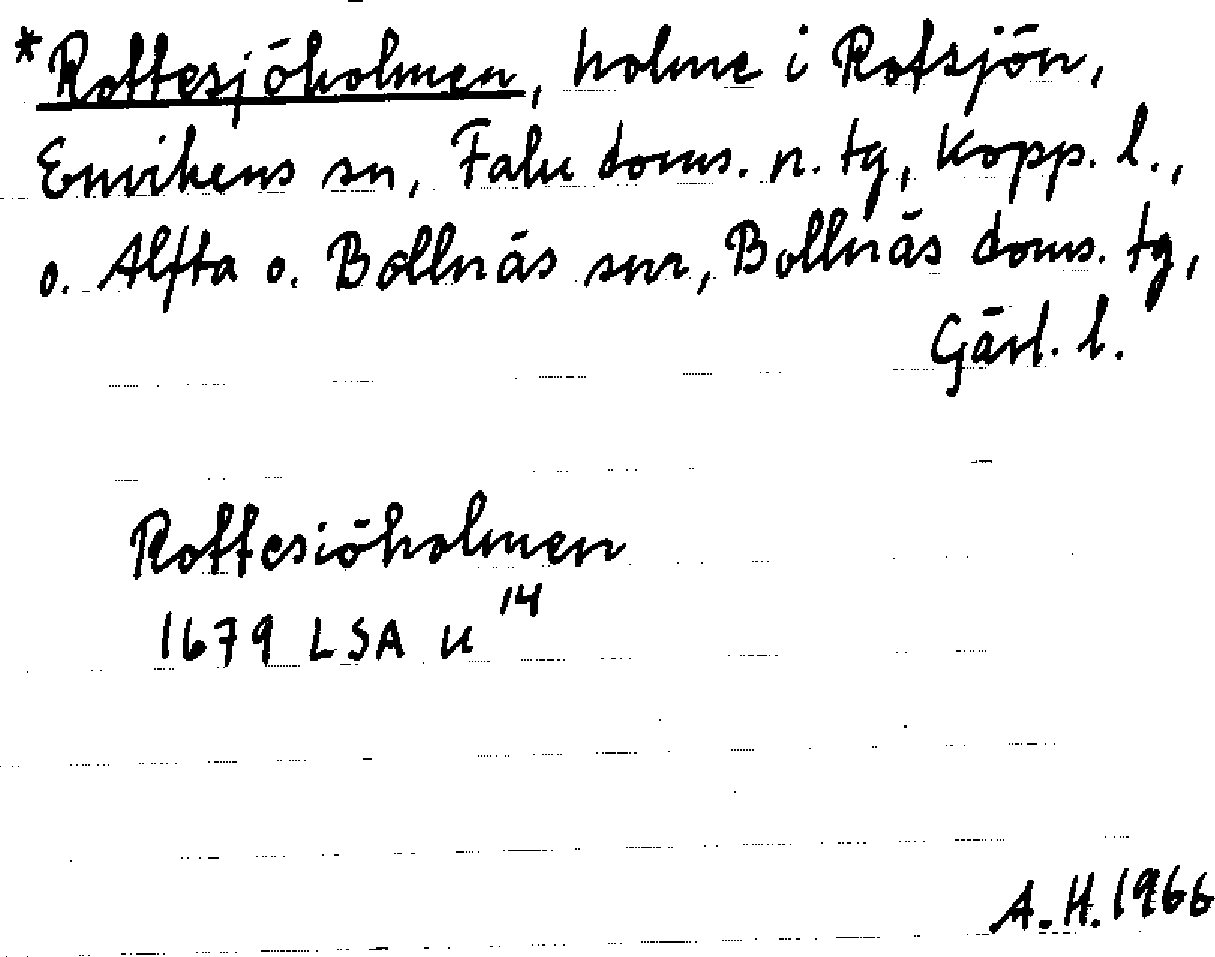 *Roffesjöholmen, holme i Rofsjön,
Envikens sn, Falu doms. n. tg, Kopp. l.,
o. Alfta o. Bollnäs snr, Bollnäs doms. tg,
Gävl. l.
Roffesiöholmen
1679 LSA U 14
A.H. 1966